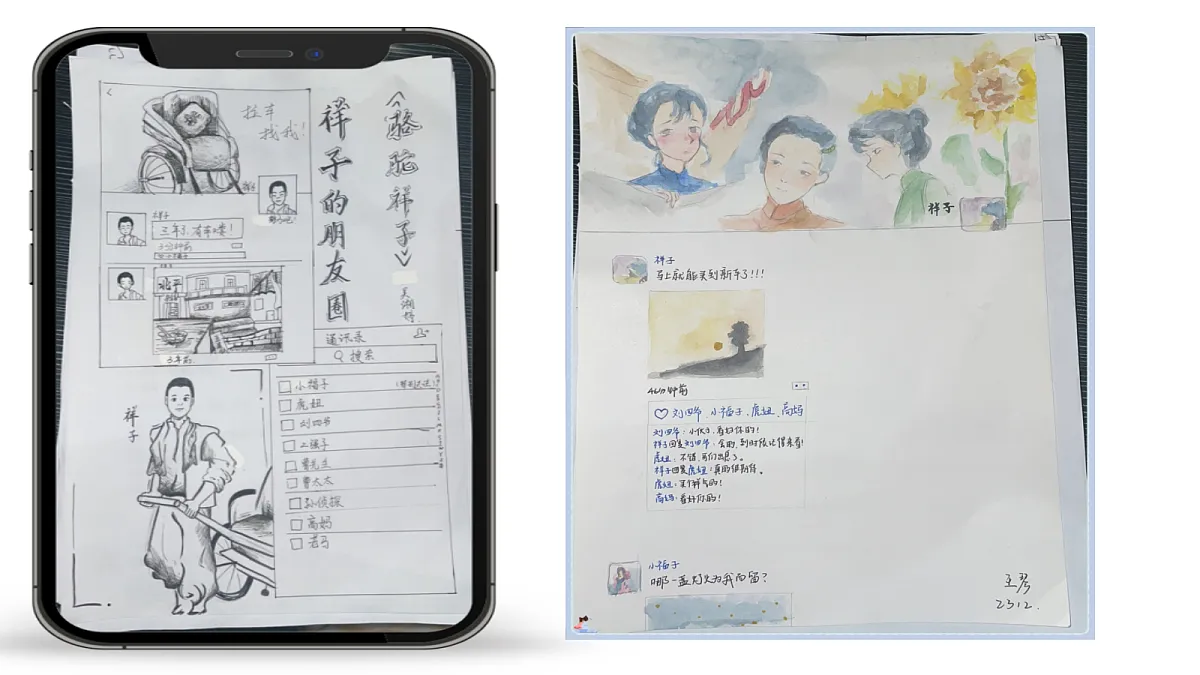 拉车
找我！
祥子
祥子
三年了，有车喽！
北平
三年前
祥子的朋友圈
《骆驼祥子》
通讯录
搜索
祥子
小福子
虎妞
刘四爷
曹先生
曹太太
孙侦探
高妈
老马
祥子
祥子
马上就能买到新车了!!!
刘四爷，小福子，虎妞，高妈
刘四爷：小伙子，看好你的！
祥子回复刘四爷：会的，到时候记得来看！
祥子回复虎妞：真的很期待。
高妈：看好你的！
小福子
哪一盏灯火为我而留？
王琴
2312.